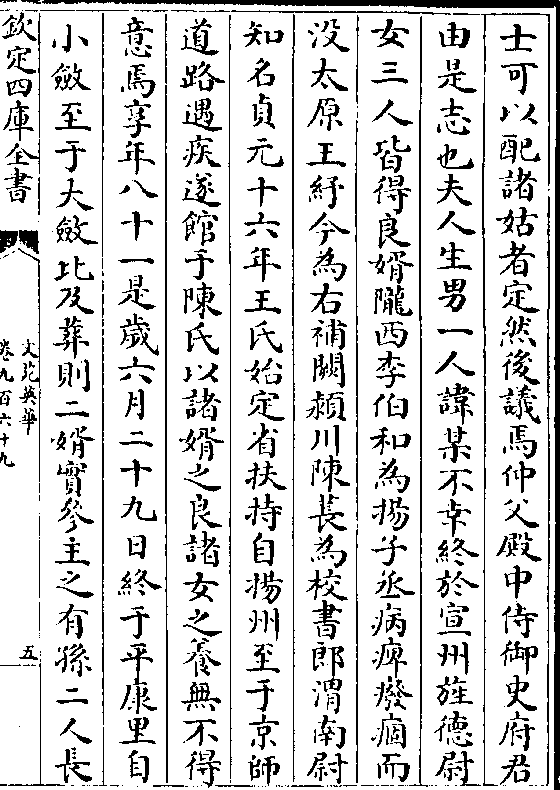 士可以配諸姑者定然後議焉仲父殿中侍御史府君
由是志也夫人生男一人諱某不幸終於宣州旌德尉
女三人皆得良婿隴西李伯和為揚子丞病痺癈痼而
没太原王紓今為右補闕潁川陳萇為校書郎渭南尉
知名貞元十六年王氏始定省扶持自揚州至于京師
道路遇疾遂館于陳氏以諸婿之良諸女之養無不得
意焉享年八十一是歲六月二十九日終于平康里自
小斂至于大斂比及葬則二婿實參主之有孫二人長
欽定四庫全書
文苑英華
卷九百六十九
五